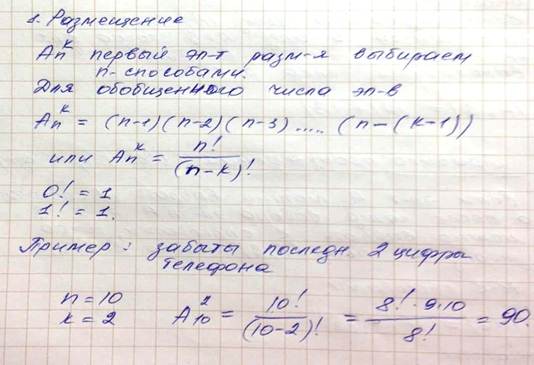 1. Размещение
Aₙᵏ первый эл-т разм-я выбираем
n-способами.
Для обобщенного числа эл-в
Aₙᵏ = (n-1)(n-2)(n-3)..... (n-(k-1))
или Aₙᵏ = n! / (n-k)!
0! = 1
1! = 1.
Пример: забыты последн. 2 цифры
телефона
n = 10
k = 2
A₁₀² = 10! / (10-2)! = 8!·9·10 / 8! = 90.